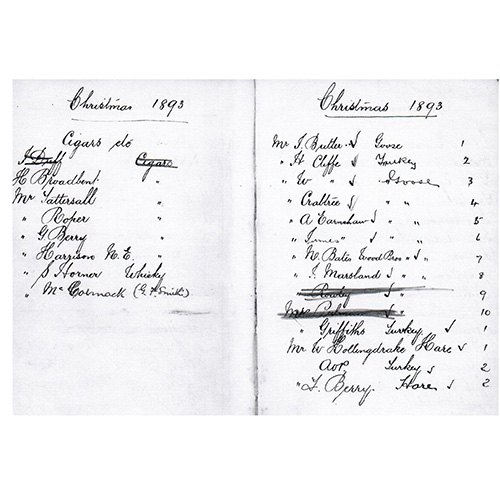 Christmas 1893
Cigars do
J Duff Cigars
H Broadbent "
Mr Tattersall "
" Roper "
" G Berry "
" Harrison N. E. "
" S Horner Whisky
" Mc Cormack (G. F. Smith)
Christmas 1893
Mr J. Butler ✓ Goose 1
" H Cliffe ✓ Turkey 2
" W " ✓ Goose 3
" Crabtree ✓ " 4
" A Earnshaw ✓ " 5
" James ✓ " 6
" N. Bates Wood Bros ✓ " 7
" J. Marsland ✓ " 8
" Rowley ✓ 9
Mr ✓ 10
" Griffiths Turkey ✓ 1
Mr W Hollingdrake Hare ✓ 1
Turkey ✓ 2
" F. Berry. Hare ✓ 2